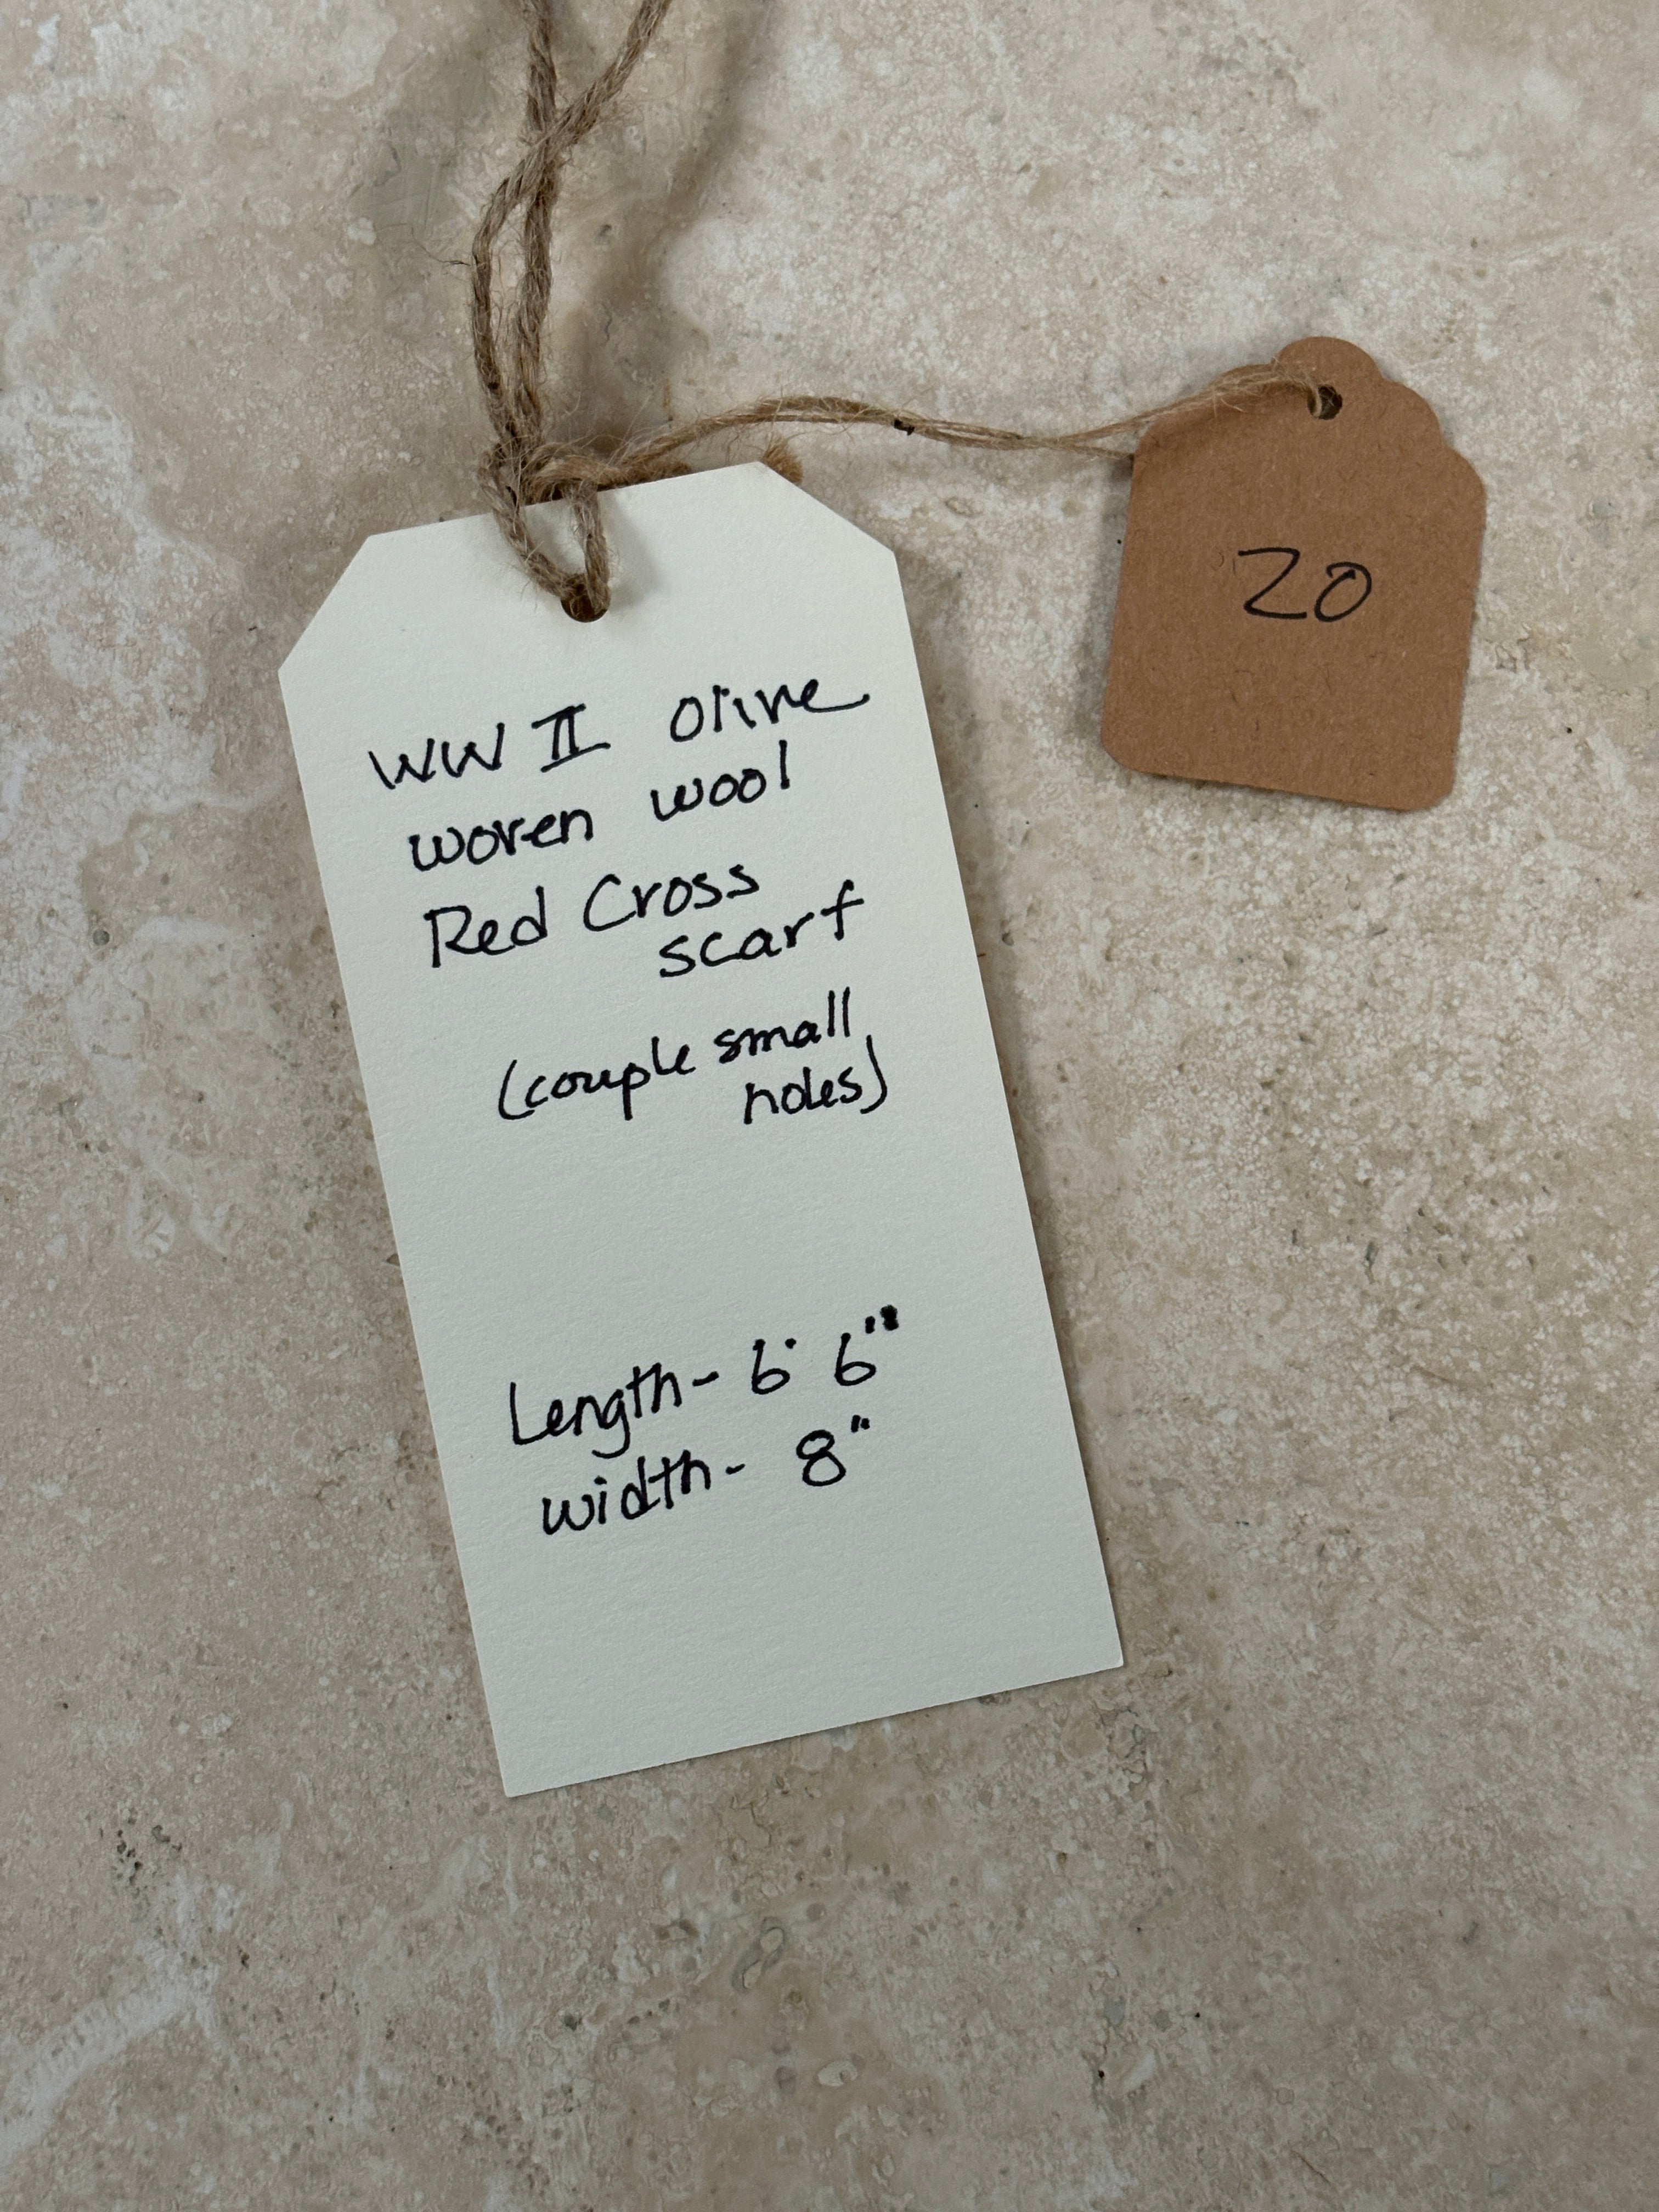 WW II Olive
woven wool
Red Cross
scarf
(couple small
holes)
Length- 6' 6"
width- 8"
20